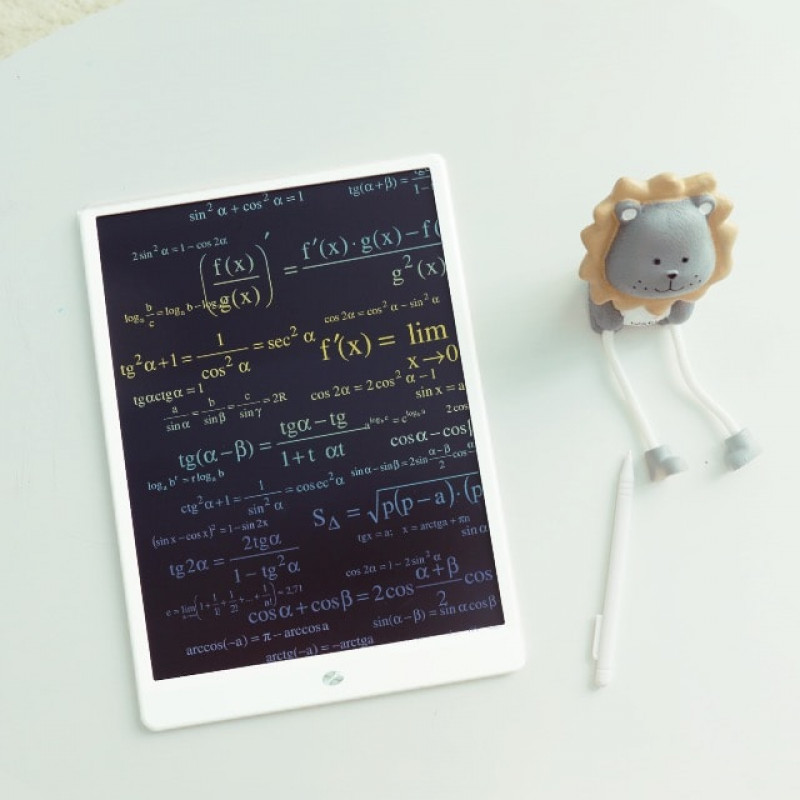 sin² α + cos² α = 1
tg(α+β) =
2 sin² α = 1 – cos 2α
(f(x)/g(x))′ = f′(x) · g(x) – f( / g²(x)
logₐ b/c = logₐ b – log
cos 2α = cos² α – sin² α
tg²α + 1 = 1/cos² α = sec² α
f′(x) = lim x→0
tgαctgα = 1
cos 2α = 2 cos² α – 1
sin x = a
a/sin α = b/sin β = c/sin γ = 2R
2 cos
tg(α – β) = tgα – tg / 1 + t αt
cos α – cos
logₐ bʳ = r logₐ b
sin α – sin β = 2 sin α–β/2 cos
ctg²α + 1 = 1/sin² α = cosec² α
S_Δ = √p(p – a) · (p
(sin x – cos x)² = 1 – sin 2x
tgx = a; x = arctga + πn
sin α
tg2α = 2tgα / 1 – tg²α
cos 2α = 1 – 2 sin² α
e = lim(1 + 1/1! + 1/2! + ... + 1/n!) = 2,71
cos α + cos β = 2cos α + β / 2 cos
sin(α – β) = sin α cos β
arccos(–a) = π – arccosa
arctg(–a) = –arctga